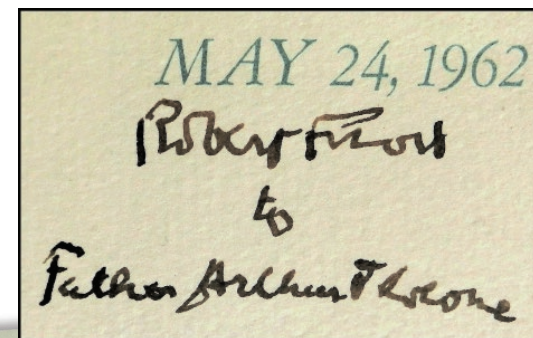 MAY 24, 1962
Robert Frost
to
Father Arthur